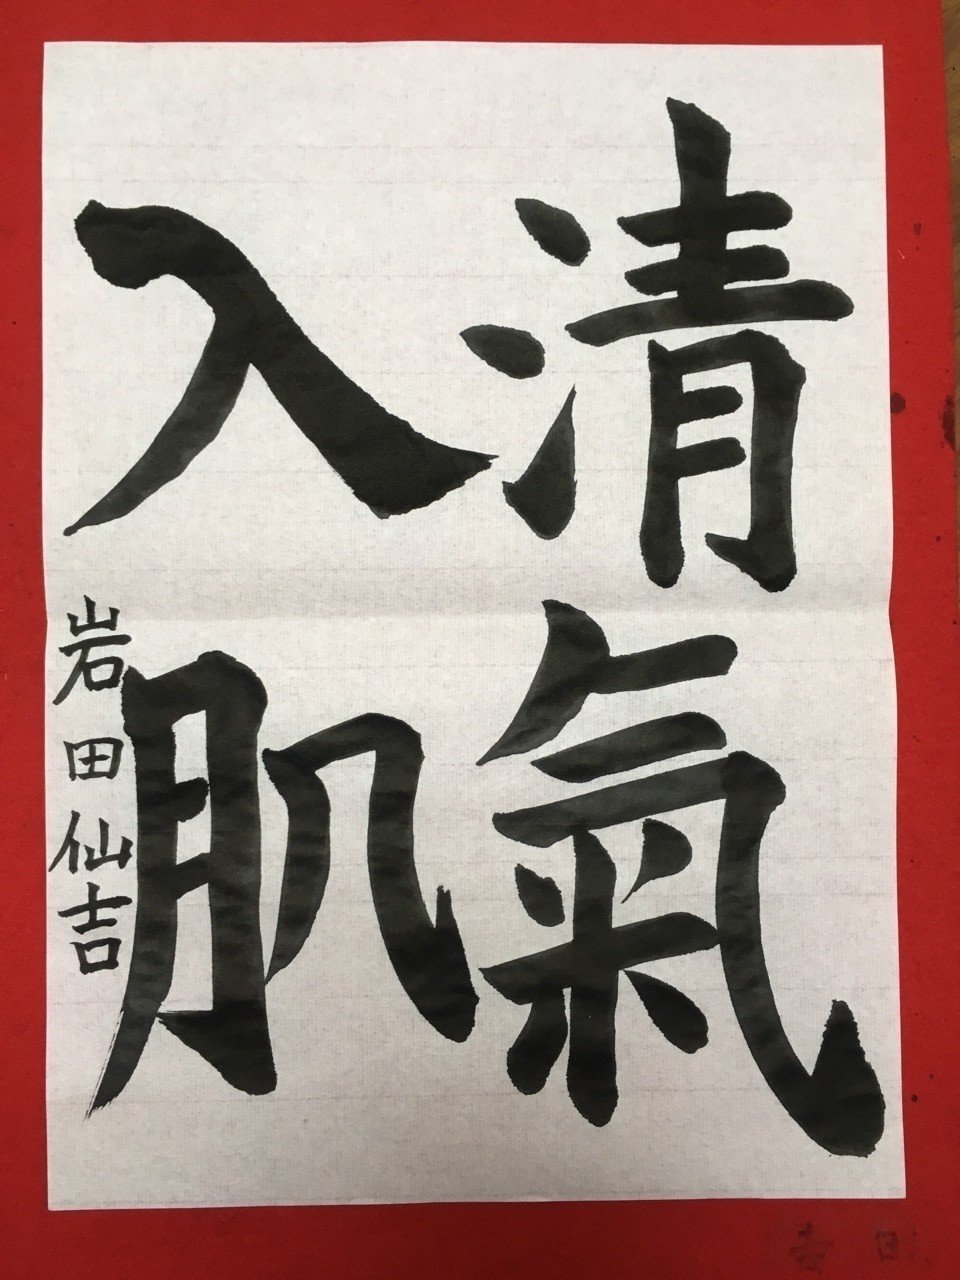 清氣
入肌
岩田仙吉